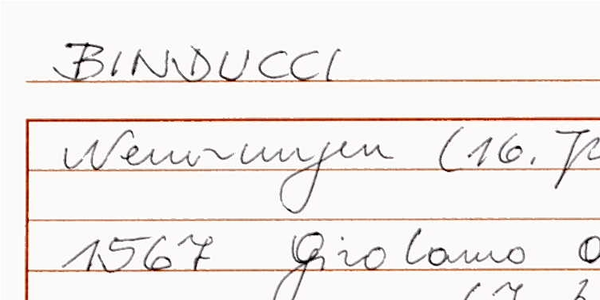 BINDUCCI
Nennungen (16. J
1567 Girolamo